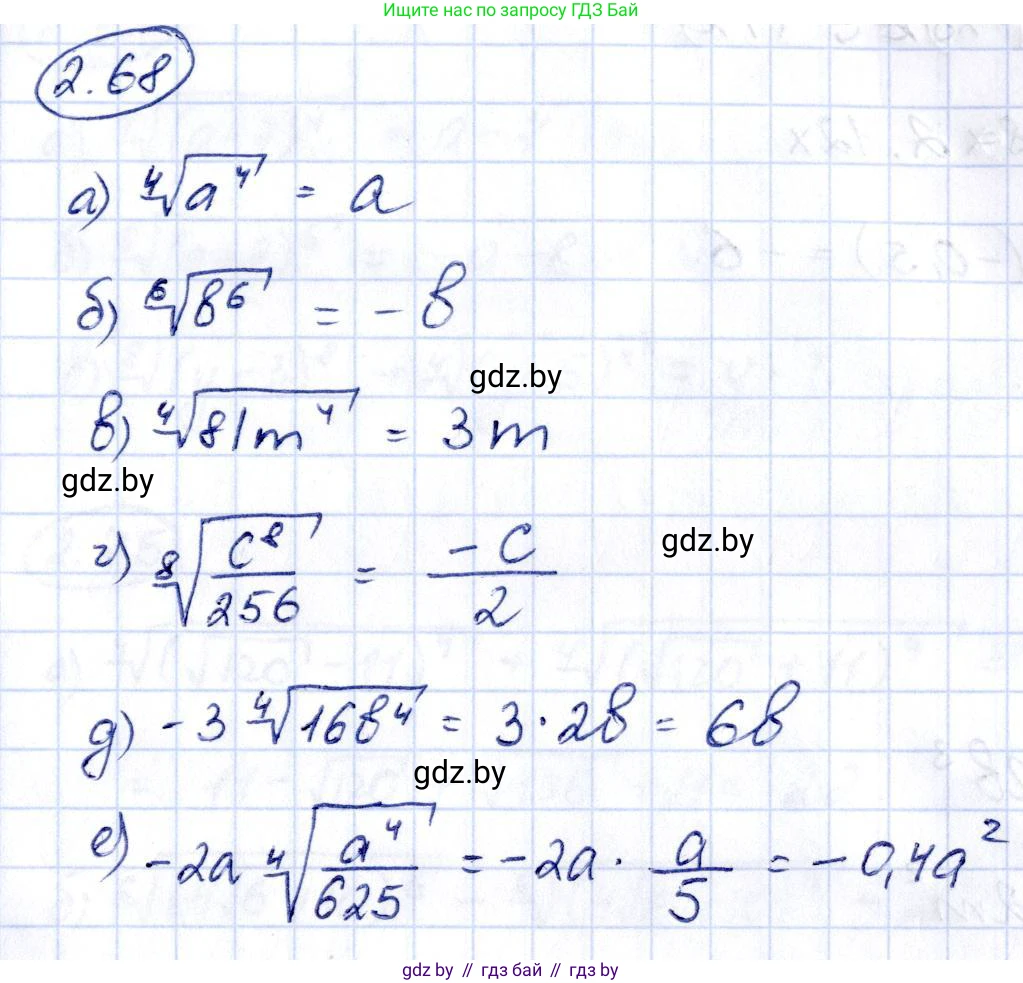 Ищите нас по запросу ГДЗ Бай
2.68
а) ∜a⁴ = a
б) ⁶√b⁶ = - b
gdz.by
в) ⁴√81m⁴ = 3m
gdz.by
г) ⁸√(c⁸/256) = -c/2
gdz.by
д) -3 ⁴√16b⁴ = 3·2b = 6b
gdz.by
е) -2a ⁴√(a⁴/625) = -2a · a/5 = -0,4a²
gdz by // гдз бай // гдз by